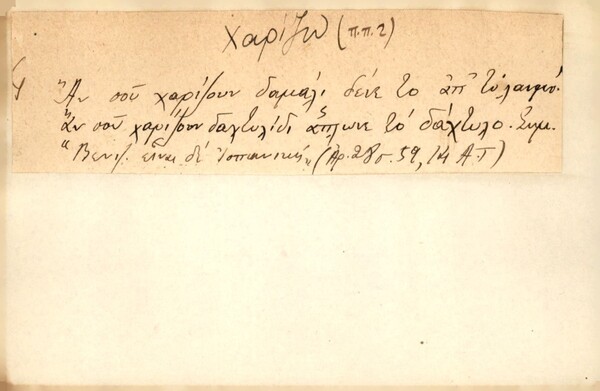 Χαρίζω (π.π. 2)
Ἂν σοῦ χαρίσουν δαμάλι δένε το ἀπ' τὸ λαιμό.
Ἂν σοῦ χαρίσουν δαχτυλίδι ἅπλωνε τὸ δάχτυλο. Συμ.
εἶναι δὲ Ἱσπανική" (Ἀρ. 28 σ. 59, 14 Α.Γ)